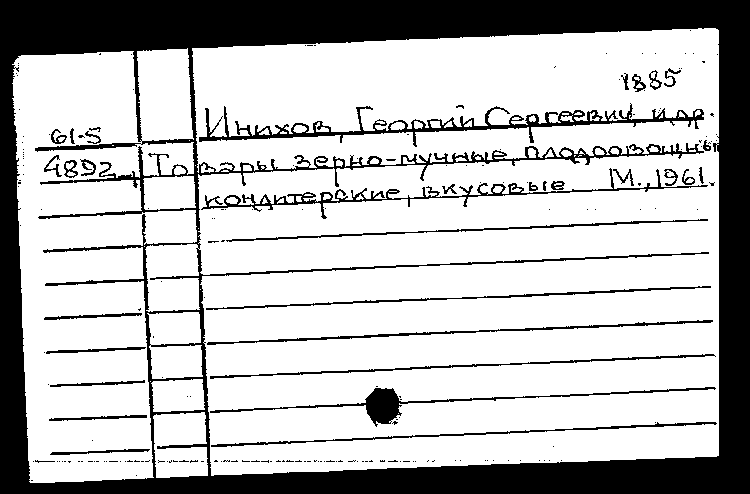 1885
61-5 Инихов, Георгий Сергеевич, и др.
4892 Товары зерно-мучные, плодоовощны
кондитерские, вкусовые. М., 1961.